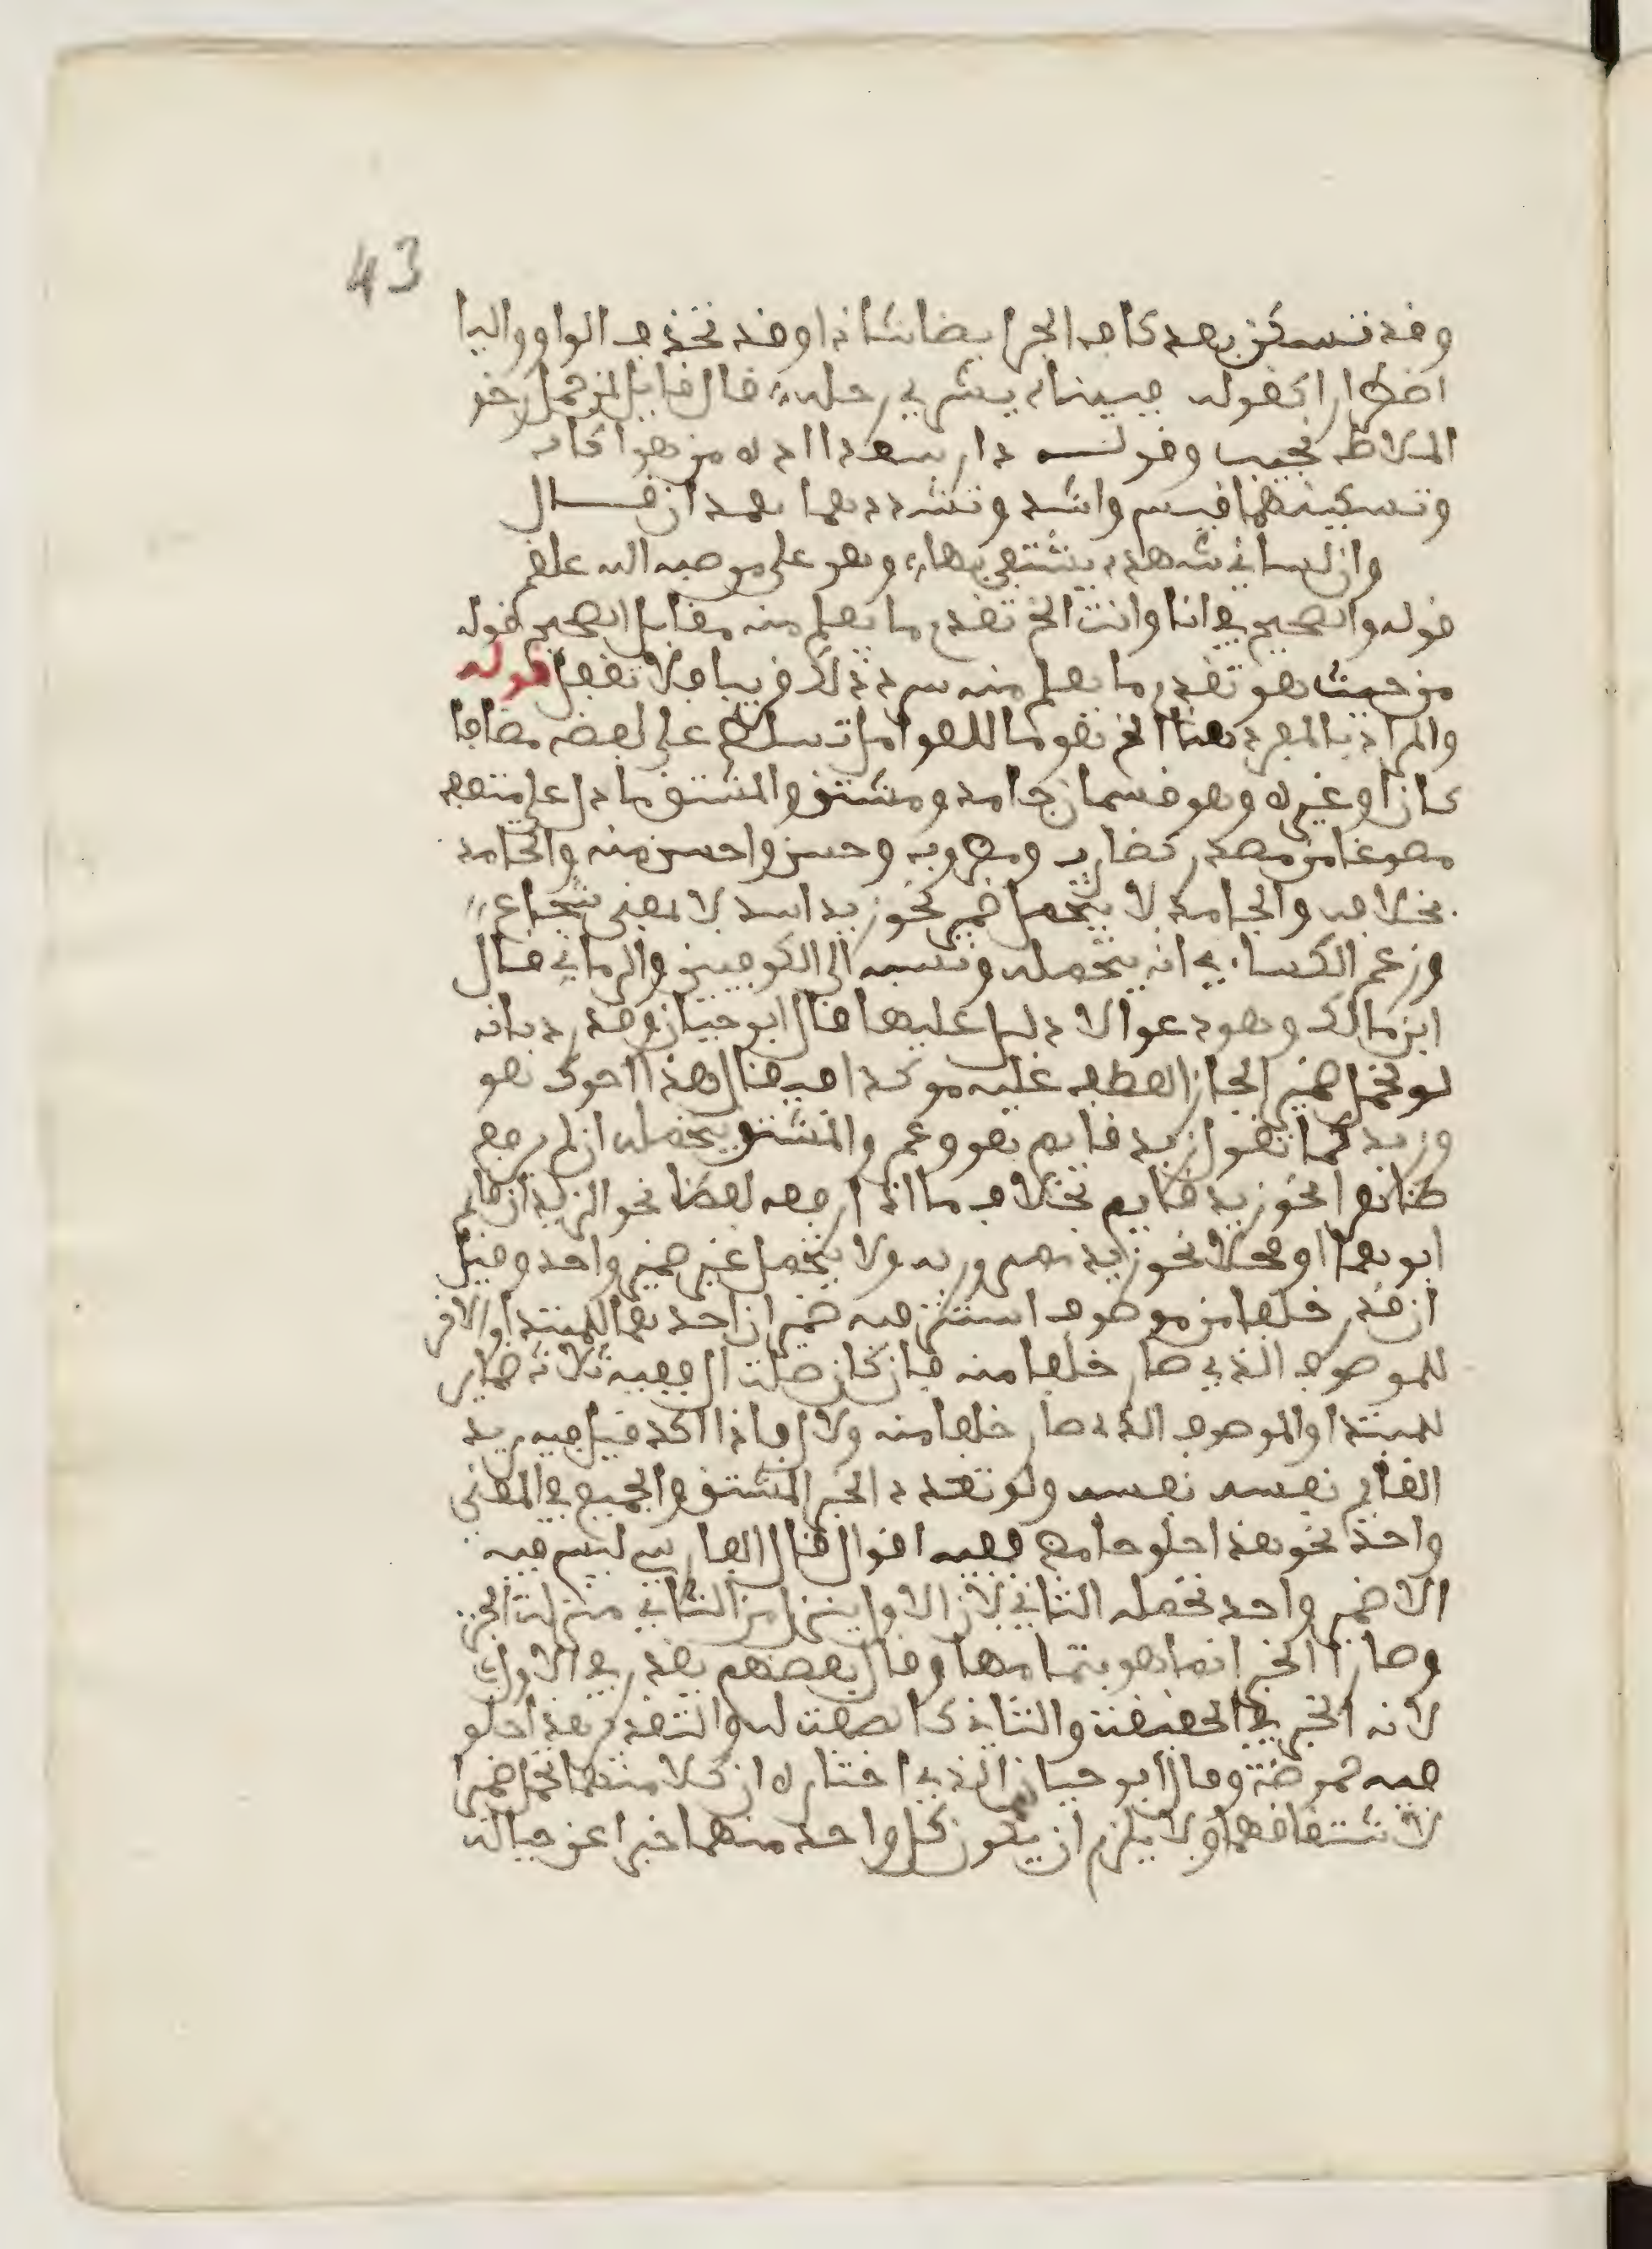 43
وقد تسكن بعد كاف الجر ايضا شاذا وقد تحذف الواو واليا
اضطرارا كقوله فبيناه يشري رحله قال قايل لمن جمل رخو
الملاط نجيب وقوله دار سعدا اذه من هواكا
وتسكينهما قيس واسد وتشددهما همدان قال
وان لساني شهدة يشتفى بها وهو على من صبه الله علقم
قوله والصحيح في انا وانت الخ تقدم ما يعلم منه مقابل الصحيح كقوله
من حيث هو تقدم ما يعلم منه سر ذلك قريبا فلا تغفل قوله
والمراد بالمفرد هنا الخ هو ما للعوامل تسلط على لفظه مضافا
كان او غيره وهو قسمان جامد ومشتق والمشتق ما دل على متصف
مصوغا من مصدر كضارب ومضروب وحسن واحسن منه والجامد
بخلافه والجامد لا يتحمل ضمير نحو زيد اسد لا بمعنى شجاع
وزعم الكسائي انه يتحمله ونسب الى الكوفيين والرماني قال
ابن مالك وهو دعوا لا دليل عليها قال ابو حيان وقد رد بانه
لو تحمل ضميرا لجاز العطف عليه موكدا فيقال هذا اخوك هو
وزيد كما تقول زيد قايم هو وعمر والمشتق يتحمله ان لم يرفع
ظاهرا نحو زيد قايم بخلاف ما اذا رفعه لفظا نحو الزيدان قايم
ابوهما او محلا نحو زيد ممرور به ولا يتحمل غير ضمير واحد وقيل
ان قدر خلفا من موصوف استتر فيه ضميران احدهما للمبتدا والاخر
للموصوف الذي صار خلفا منه فان كان صلت ال ففيه ثلاثة ضماير
للمبتدا والموصوف الذي صار خلفا منه ولال فاذا اكد قيل فيه زيد
القايم نفسه نفسه ولو تعدد الخبر المشتق والجميع في المعنى
واحد نحو هذا حلو حامض ففيه اقوال قال الفارسي ليس فيه
الا ضمير واحد تحمله الثاني لان الاول ينزل من الثاني منزلت الجزء
وصار الخبر انما هو بتمامها وقال بعضهم يقدر في الاول
لانه الخبر في الحقيقت والثاني كالصفت له والتقدير هذا حلو
فيه حموضة وقال ابو حيان الذي اختاره ان كلا منهما تحمل ضميرا
لاشتقاقهما ولا يلزم ان يكون كل واحد منهما خبرا عن حياله